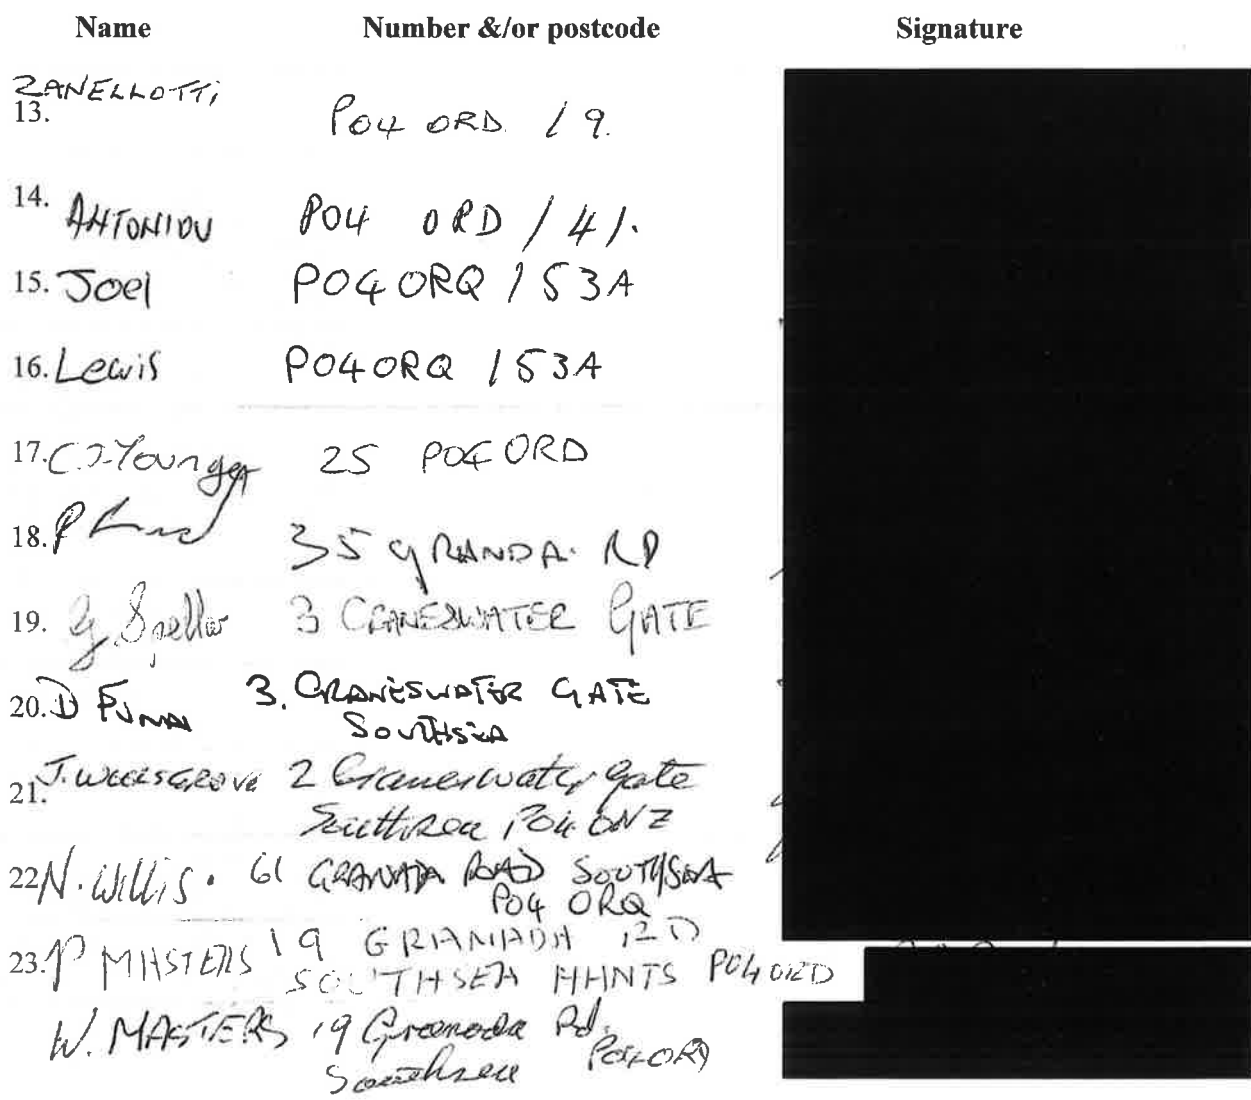 Name Number &/or postcode Signature
ZANELLOTTI
13. PO4 ORD 19.
14. ANTONIOU PO4 ORD / 41.
15. Joel PO4 ORQ / 53A
16. Lewis PO4 ORQ / 53A
17. C.J. Younger 25 PO4 ORD
18. P 35 GRANDA RD
19. G Speller 3 CRANESWATER GATE
20. D 3. CRANESWATER GATE
SOUTHSEA
21. J. 2 Craneswater Gate
Southsea PO4 ONZ
22 N. Willis. 61 GRANADA ROAD SOUTHSEA
PO4 ORQ
23. P MASTERS 19 GRANADA RD
SOUTHSEA HANTS PO4 ORD
W. MASTERS 19 Granada Rd.
Southsea PO4 ORD